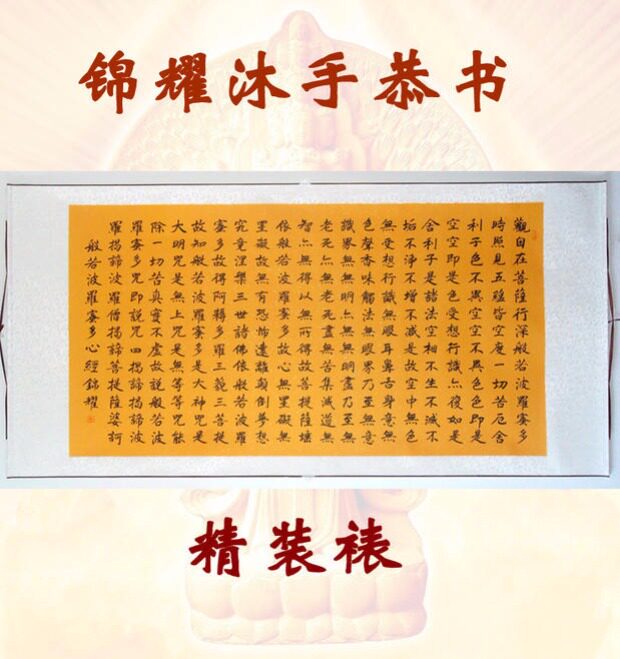 锦耀沐手恭书
觀自在菩薩行深般若波羅蜜多
時照見五蘊皆空度一切苦厄舍
利子色不異空空不異色色即是
空空即是色受想行識亦復如是
舍利子是諸法空相不生不滅不
垢不淨不增不減是故空中無色
無受想行識無眼耳鼻舌身意無
色聲香味觸法無眼界乃至無意
識界無無明亦無無明盡乃至無
老死亦無老死盡無苦集滅道無
智亦無得以無所得故菩提薩埵
依般若波羅蜜多故心無罣礙無
罣礙故無有恐怖遠離顛倒夢想
究竟涅槃三世諸佛依般若波羅
蜜多故得阿耨多羅三藐三菩提
故知般若波羅蜜多是大神咒是
大明咒是無上咒是無等等咒能
除一切苦真實不虛故說般若波
羅蜜多咒即說咒曰揭諦揭諦波
羅揭諦波羅僧揭諦菩提薩婆訶
般若波羅蜜多心經錦耀
精装裱